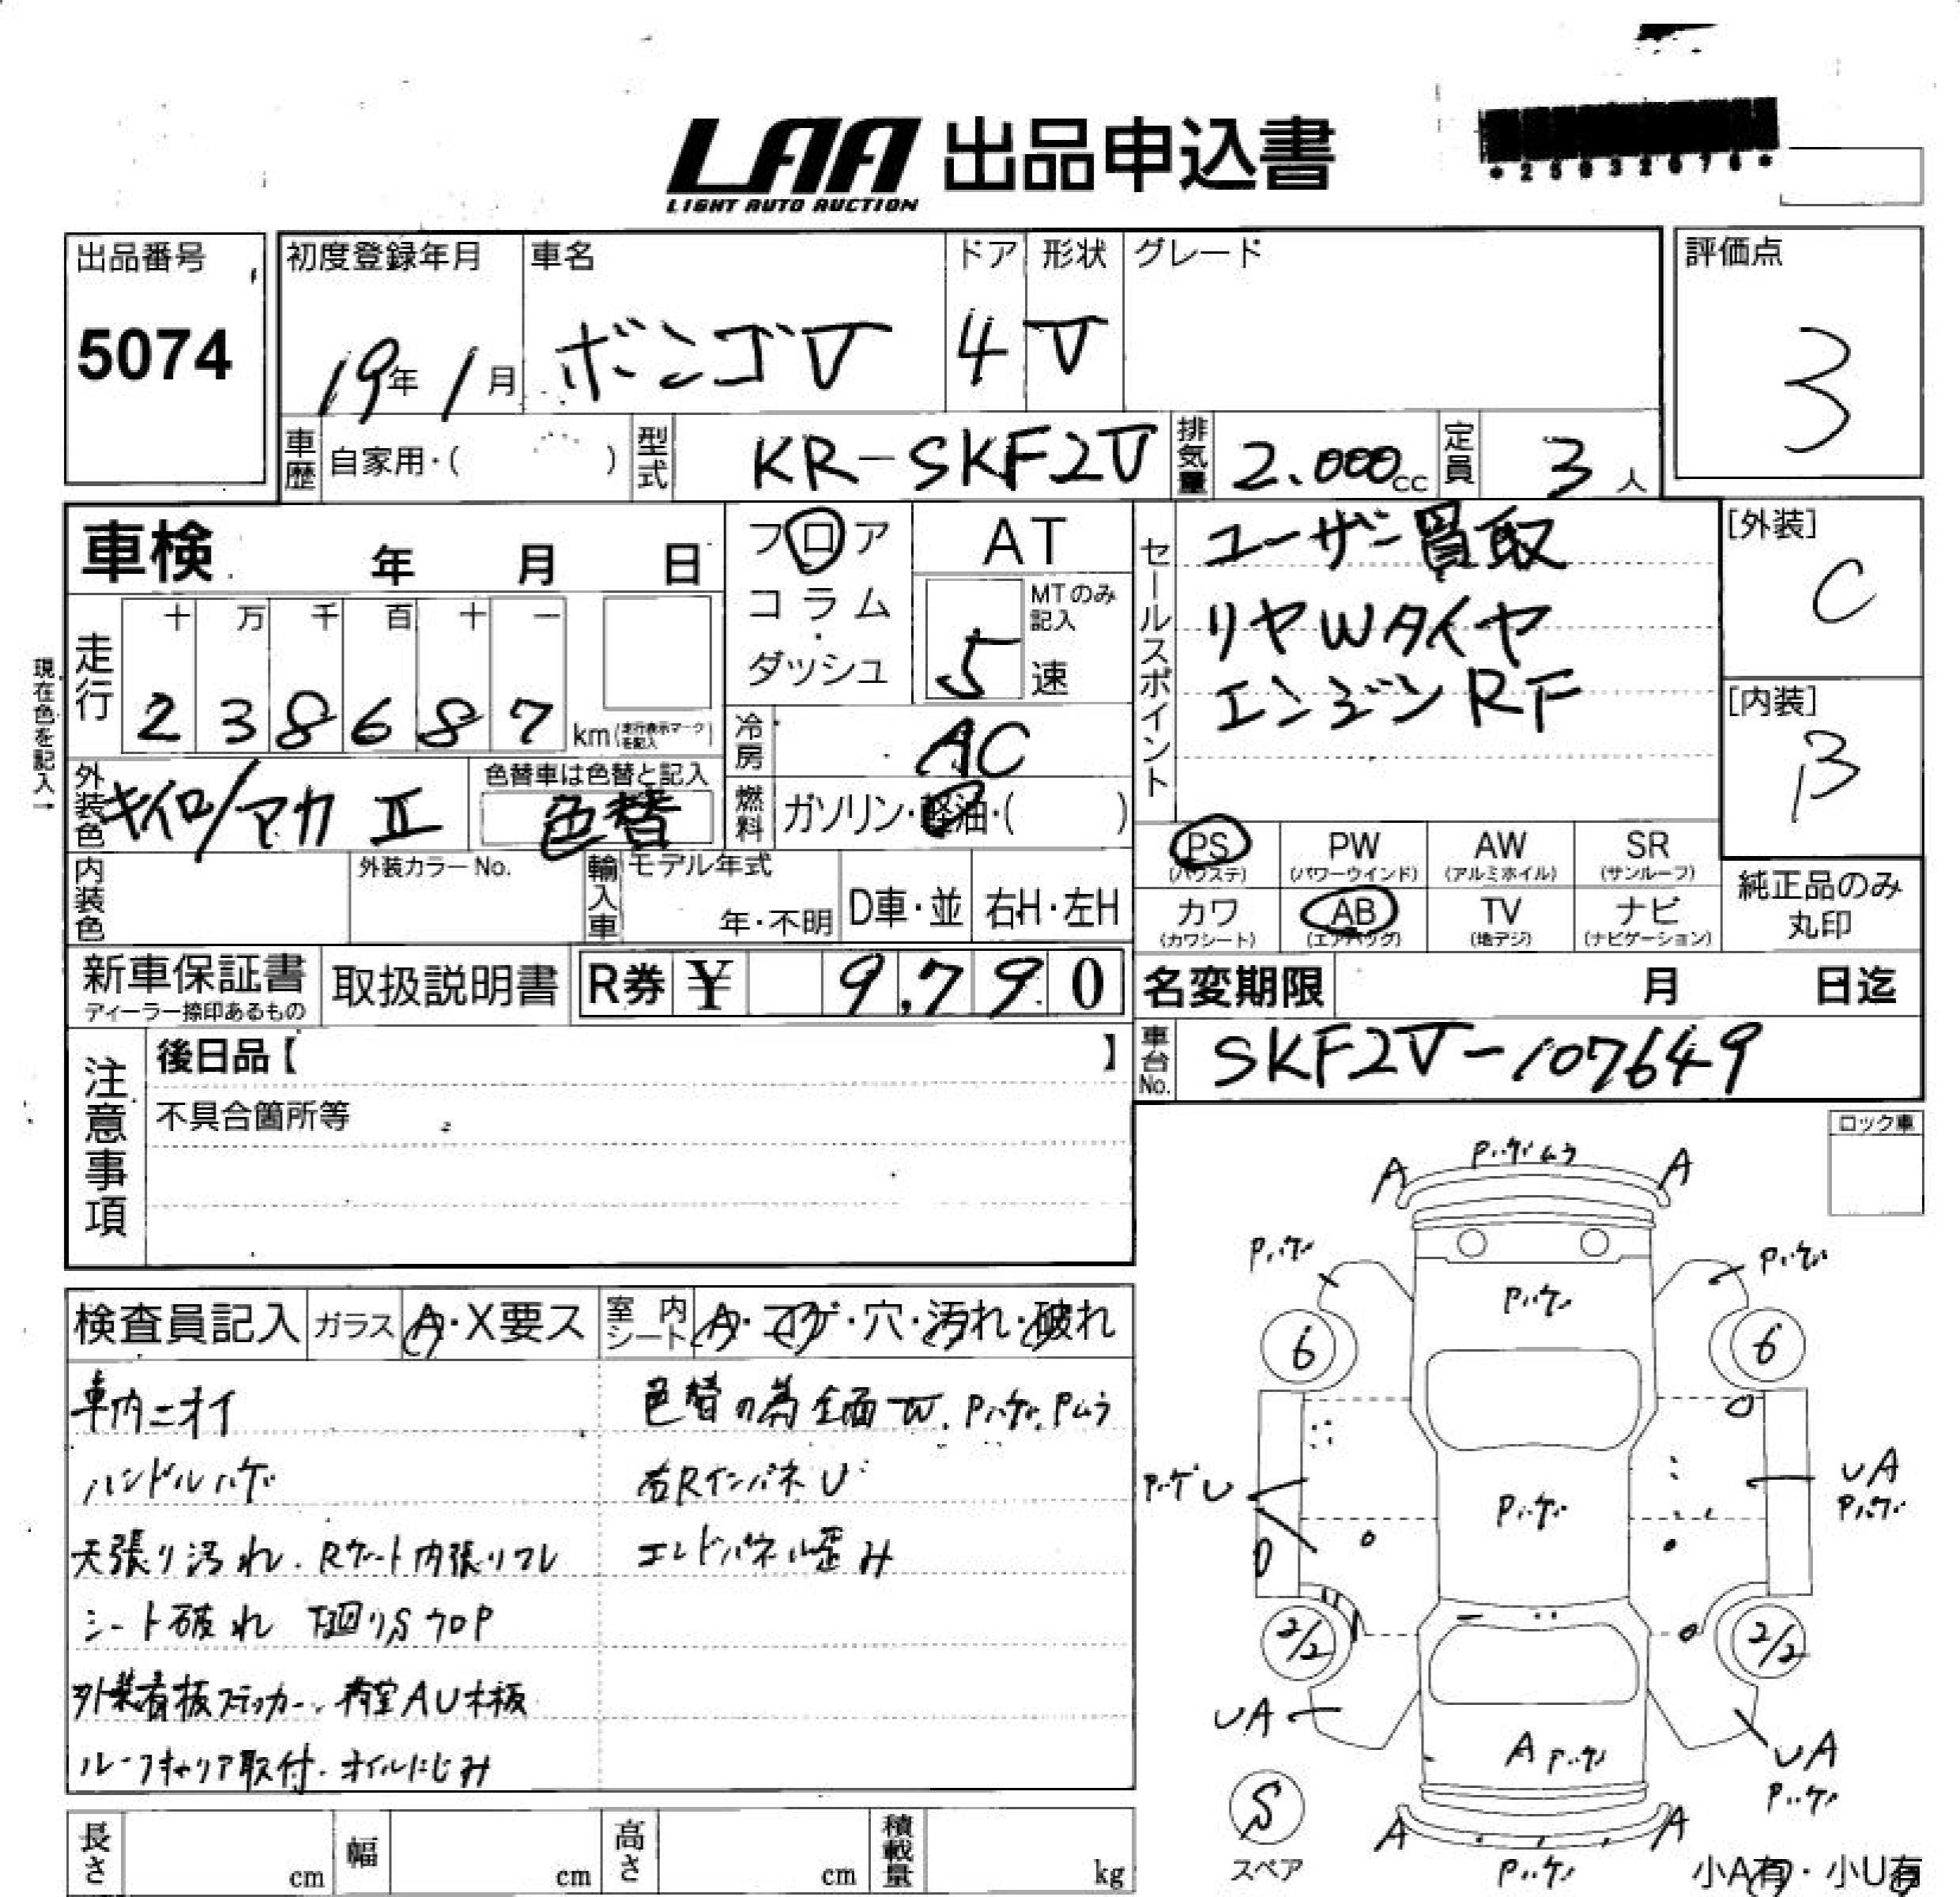 LAA 出品申込書
LIGHT AUTO AUCTION
*25032076*
出品番号
5074
初度登録年月 車名 ドア 形状 グレード
19年 1月 ボンゴV 4 V
評価点
3
車歴 自家用・( ) 型式 KR-SKF2V 排気量 2.000cc 定員 3人
車検 年 月 日
フロア AT
コラム・ダッシュ
MTのみ記入
5 速
セールスポイント
ユーザー買取
リヤWタイヤ
エンジンRF
[外装]
C
[内装]
B
現在色を記入→
走行
十 万 千 百 十 一
2 3 8 6 8 7 km(走行表示マークを記入)
冷房 AC
外装色 キイロ/アカ II
色替車は色替と記入
色替
燃料 ガソリン・軽油・( )
PS PW AW SR
(パワステ) (パワーウインド) (アルミホイル) (サンルーフ)
カワ AB TV ナビ
(カワシート) (エアバッグ) (地デジ) (ナビゲーション)
純正品のみ
丸印
内装色 外装カラーNo. 輸入車 モデル年式
年・不明 D車・並 右H・左H
新車保証書 取扱説明書 R券 ¥ 9,790
ディーラー捺印あるもの
名変期限 月 日迄
車台No. SKF2V-107649
注意事項
後日品【 】
不具合箇所等
ロック車
検査員記入 ガラス A・X要ス 室内シート A・コゲ・穴・汚れ・破れ
車内ニオイ 色替の為全面W、Pハゲ、Pムラ
ハンドルハゲ 右RインパネU
天張り汚れ、Rゲート内張リワレ エンドパネル歪み
シート破れ 下廻りSクロP
外装看板ステッカー、荷室AU木板
ルーフキャリア取付・オイルにじみ
A PハゲムラA
Pハゲ Pハゲ
Pハゲ
6 6
PハゲU Pハゲ UA
Pハゲ
2/2 2/2
UA A Pハゲ UA
Pハゲ
S
スペア
A A
Pハゲ
小A有・小U有
長さ cm 幅 cm 高さ cm 積載量 kg